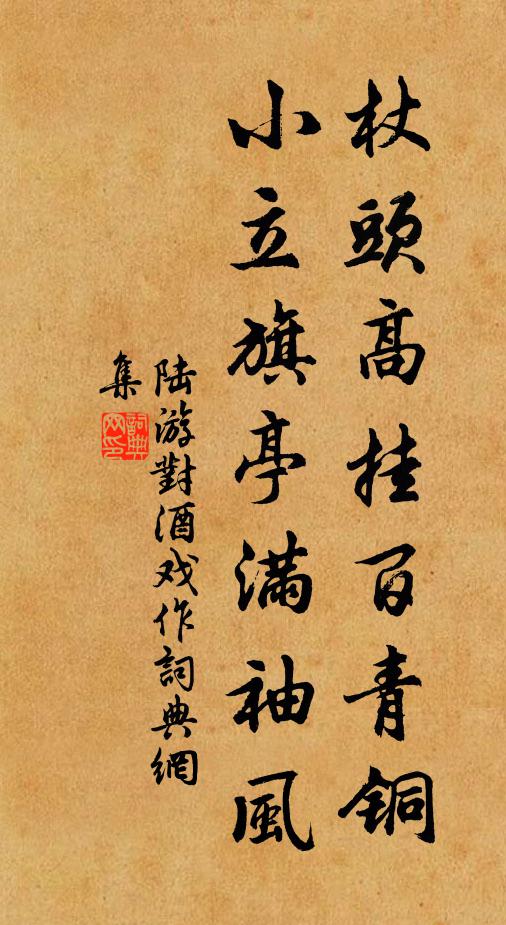 杖頭高挂百青铜
小立旗亭满袖風
陆游對酒戏作詞典網
集
詞典网印